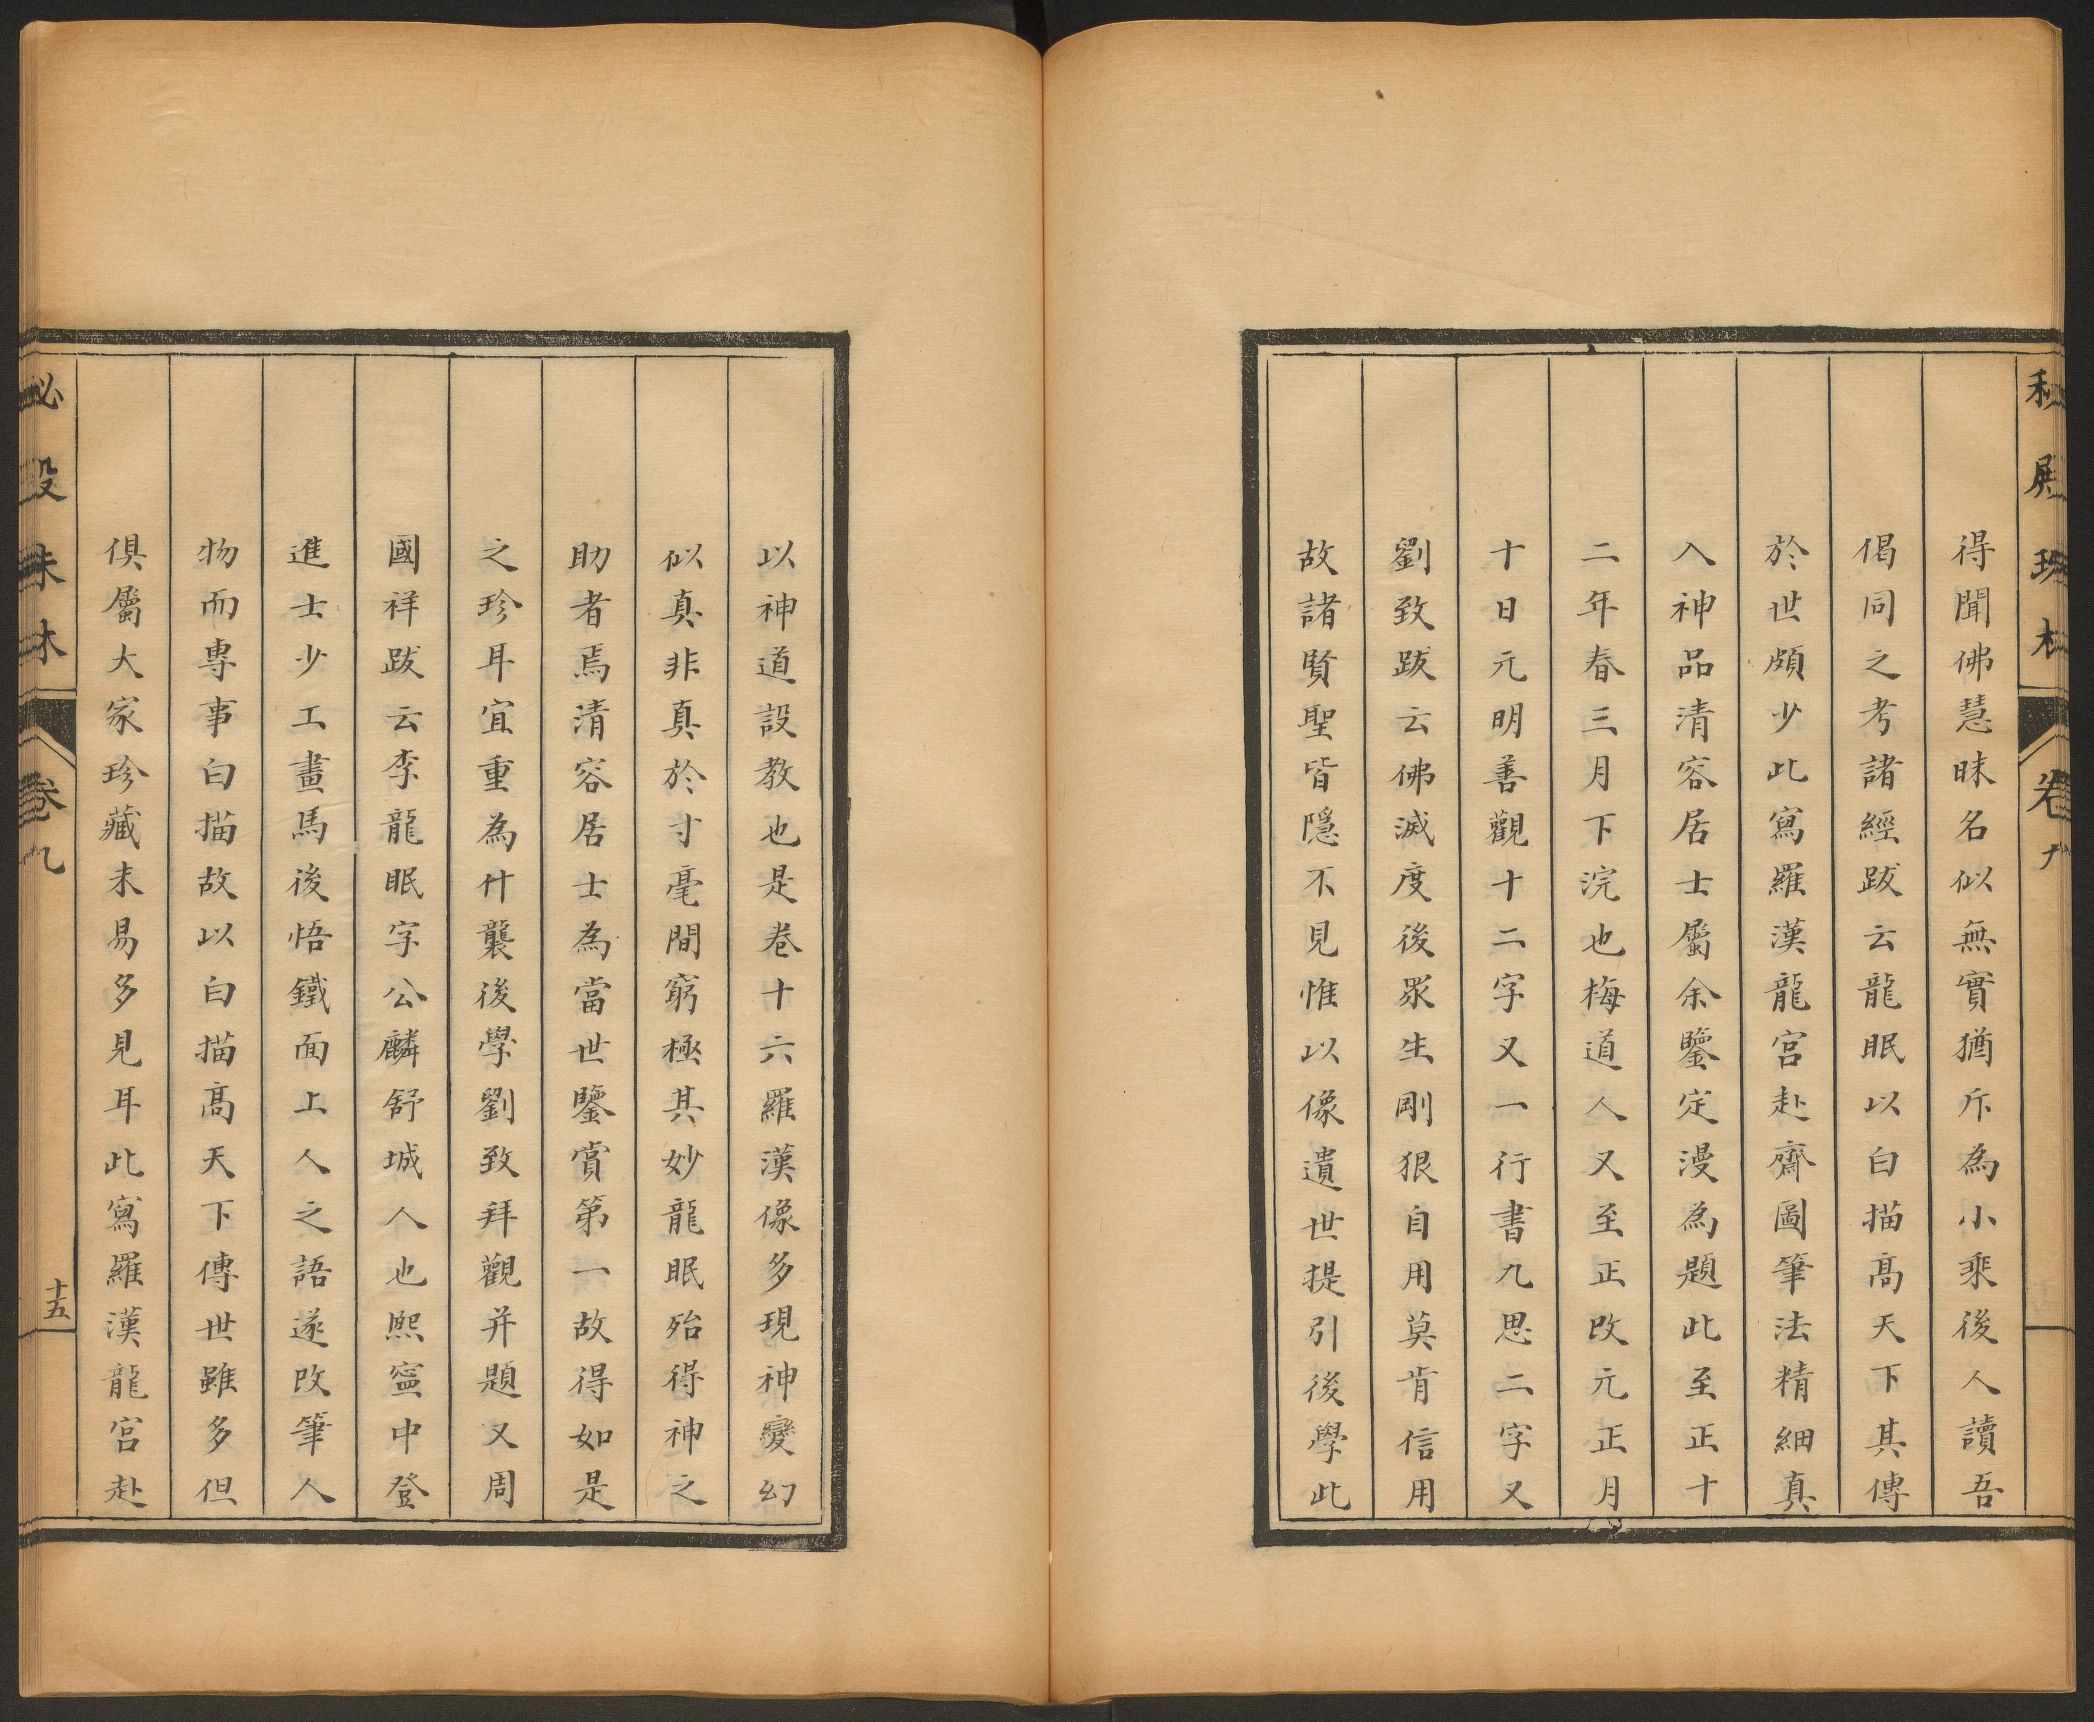 得聞佛慧昧名似無實猶斥為小乘後人讀吾
偈同之考諸經跋云龍眠以白描高天下其傳
於世頗少此寫羅漢龍宮赴齋圖筆法精細真
入神品清容居士屬余鑒定漫為題此至正十
二年春三月下浣也梅道人又至正改元正月
十日元明善觀十二字又一行書九思二字又
劉致跋云佛滅度後眾生剛狠自用莫肯信用
故諸賢聖皆隱不見惟以像遺世提引後學此
以神道設教也是卷十六羅漢像多現神變幻
似真非真於寸毫間窮極其妙龍眠殆得神之
助者焉清容居士為當世鑒賞第一故得如是
之珍耳宜重為什襲後學劉致拜觀并題又周
國祥跋云李龍眠字公麟舒城人也熙寧中登
進士少工畫馬後悟鐵面上人之語遂改筆人
物而專事白描故以白描高天下傳世雖多但
俱屬大家珍藏未易多見耳此寫羅漢龍宮赴
卷九
十五